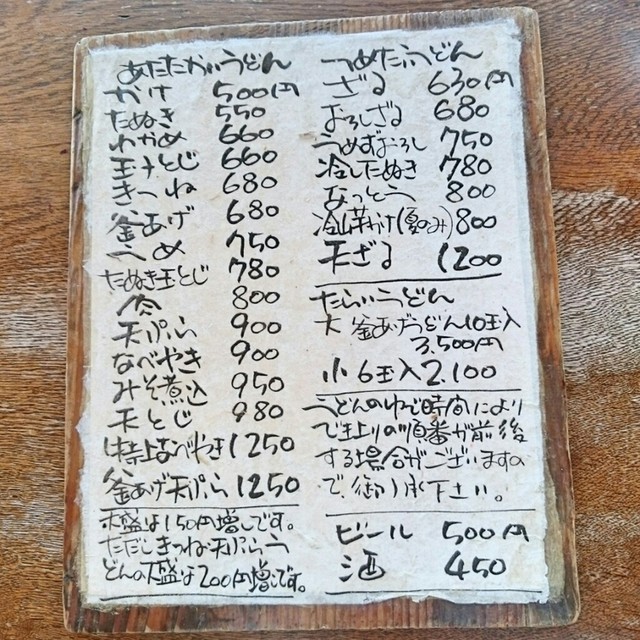 あたたかいうどん
かけ 500円
たぬき 550
わかめ 660
玉子とじ 660
きつね 680
釜あげ 680
うめ 750
たぬき玉とじ 780
肉 800
天ぷら 900
なべやき 900
みそ煮込 950
天とじ 980
特上なべやき 1250
釜あげ天ぷら 1250
大盛は150円増しです。
ただしきつね天ぷらう
どんの大盛は200円増しです。
つめたいうどん
ざる 630円
おろしざる 680
うめずおろし 750
冷したぬき 780
なっとう 800
冷山芋かけ(夏のみ) 800
天ざる 1200
たらいうどん
大 釜あげうどん10玉入
3.500円
小 6玉入 2.100
うどんのゆで時間により
で上りの順番が前後
する場合がございますの
で、御了承下さい。
ビール 500円
酒 450